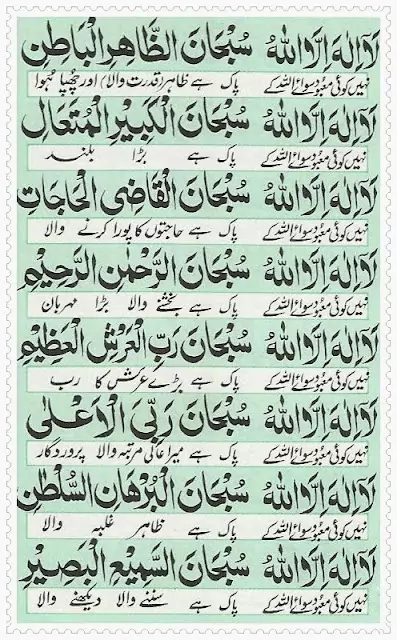 لَآ اِلٰهَ اِلَّا اللهُ سُبْحَانَ الظَّاهِرِ الْبَاطِنِ
نہیں کوئی معبود سوائے اللہ کے پاک ہے ظاہر (قدرت والا) اور چھپا ہوا
لَآ اِلٰهَ اِلَّا اللهُ سُبْحَانَ الْكَبِيْرِ الْمُتَعَالِ
نہیں کوئی معبود سوائے اللہ کے پاک ہے بڑا بلند
لَآ اِلٰهَ اِلَّا اللهُ سُبْحَانَ الْقَاضِى الْحَاجَاتِ
نہیں کوئی معبود سوائے اللہ کے پاک ہے حاجتوں کا پورا کرنے والا
لَآ اِلٰهَ اِلَّا اللهُ سُبْحَانَ الرَّحْمٰنِ الرَّحِيْمِ
نہیں کوئی معبود سوائے اللہ کے پاک ہے بخشنے والا بڑا مہربان
لَآ اِلٰهَ اِلَّا اللهُ سُبْحَانَ رَبِّ الْعَرْشِ الْعَظِيْمِ
نہیں کوئی معبود سوائے اللہ کے پاک ہے بڑے عرش کا رب
لَآ اِلٰهَ اِلَّا اللهُ سُبْحَانَ رَبِّىَ الْاَعْلٰى
نہیں کوئی معبود سوائے اللہ کے پاک ہے میرا عالی مرتبہ والا پروردگار
لَآ اِلٰهَ اِلَّا اللهُ سُبْحَانَ الْبُرْهَانِ السُّلْطٰنِ
نہیں کوئی معبود سوائے اللہ کے پاک ہے ظاہر غلبہ والا
لَآ اِلٰهَ اِلَّا اللهُ سُبْحَانَ السَّمِيْعِ الْبَصِيْرِ
نہیں کوئی معبود سوائے اللہ کے پاک ہے سننے والا دیکھنے والا